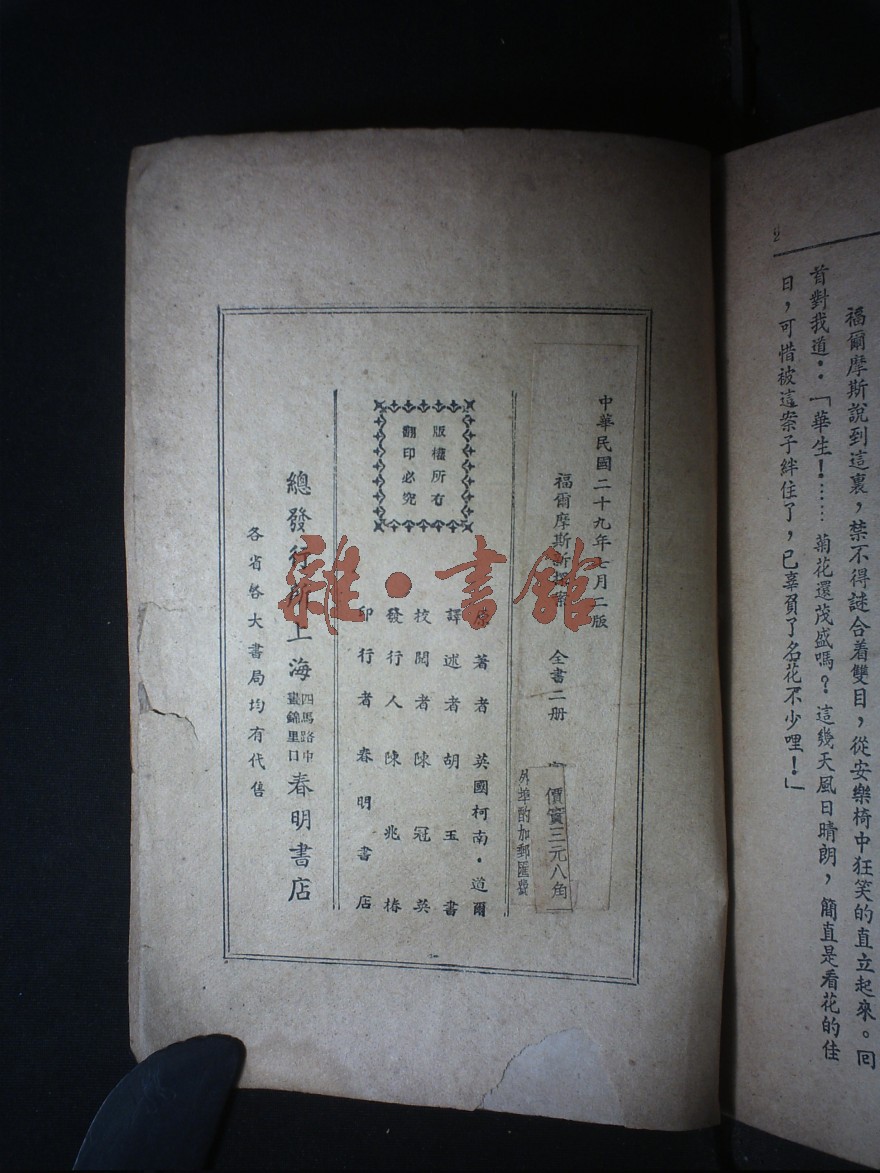 2
福爾摩斯說到這裏，禁不得謎合着雙目，從安樂椅中狂笑的直立起來。回
首對我道：「華生！……菊花還茂盛嗎？這幾天風日晴朗，簡直是看花的佳
日，可惜被這案子絆住了，已辜負了名花不少哩！」
中華民國二十九年七月二版
福爾摩斯新探案 全書二册
價實三元八角
外埠酌加郵匯費
原著者 英國柯南·道爾
譯述者 胡玉書
校閱者 陳冠英
發行人 陳兆椿
印行者 春明書店
版權所有
翻印必究
總發行所 上海 四馬路中 晝錦里口 春明書店
各省各大書局均有代售
雜·書館